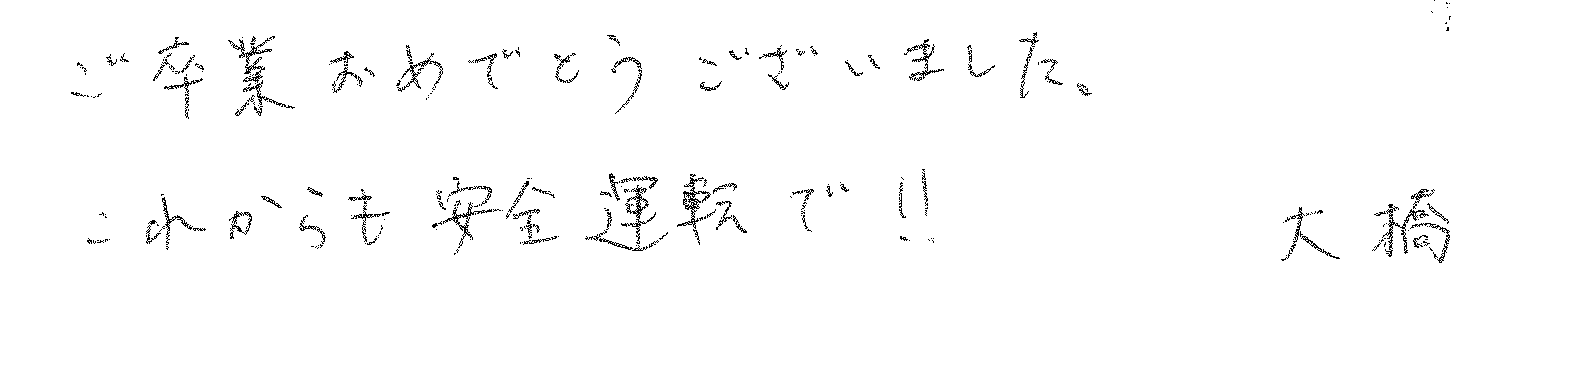 ご卒業おめでとうございました。
これからも安全運転で!! 大橋